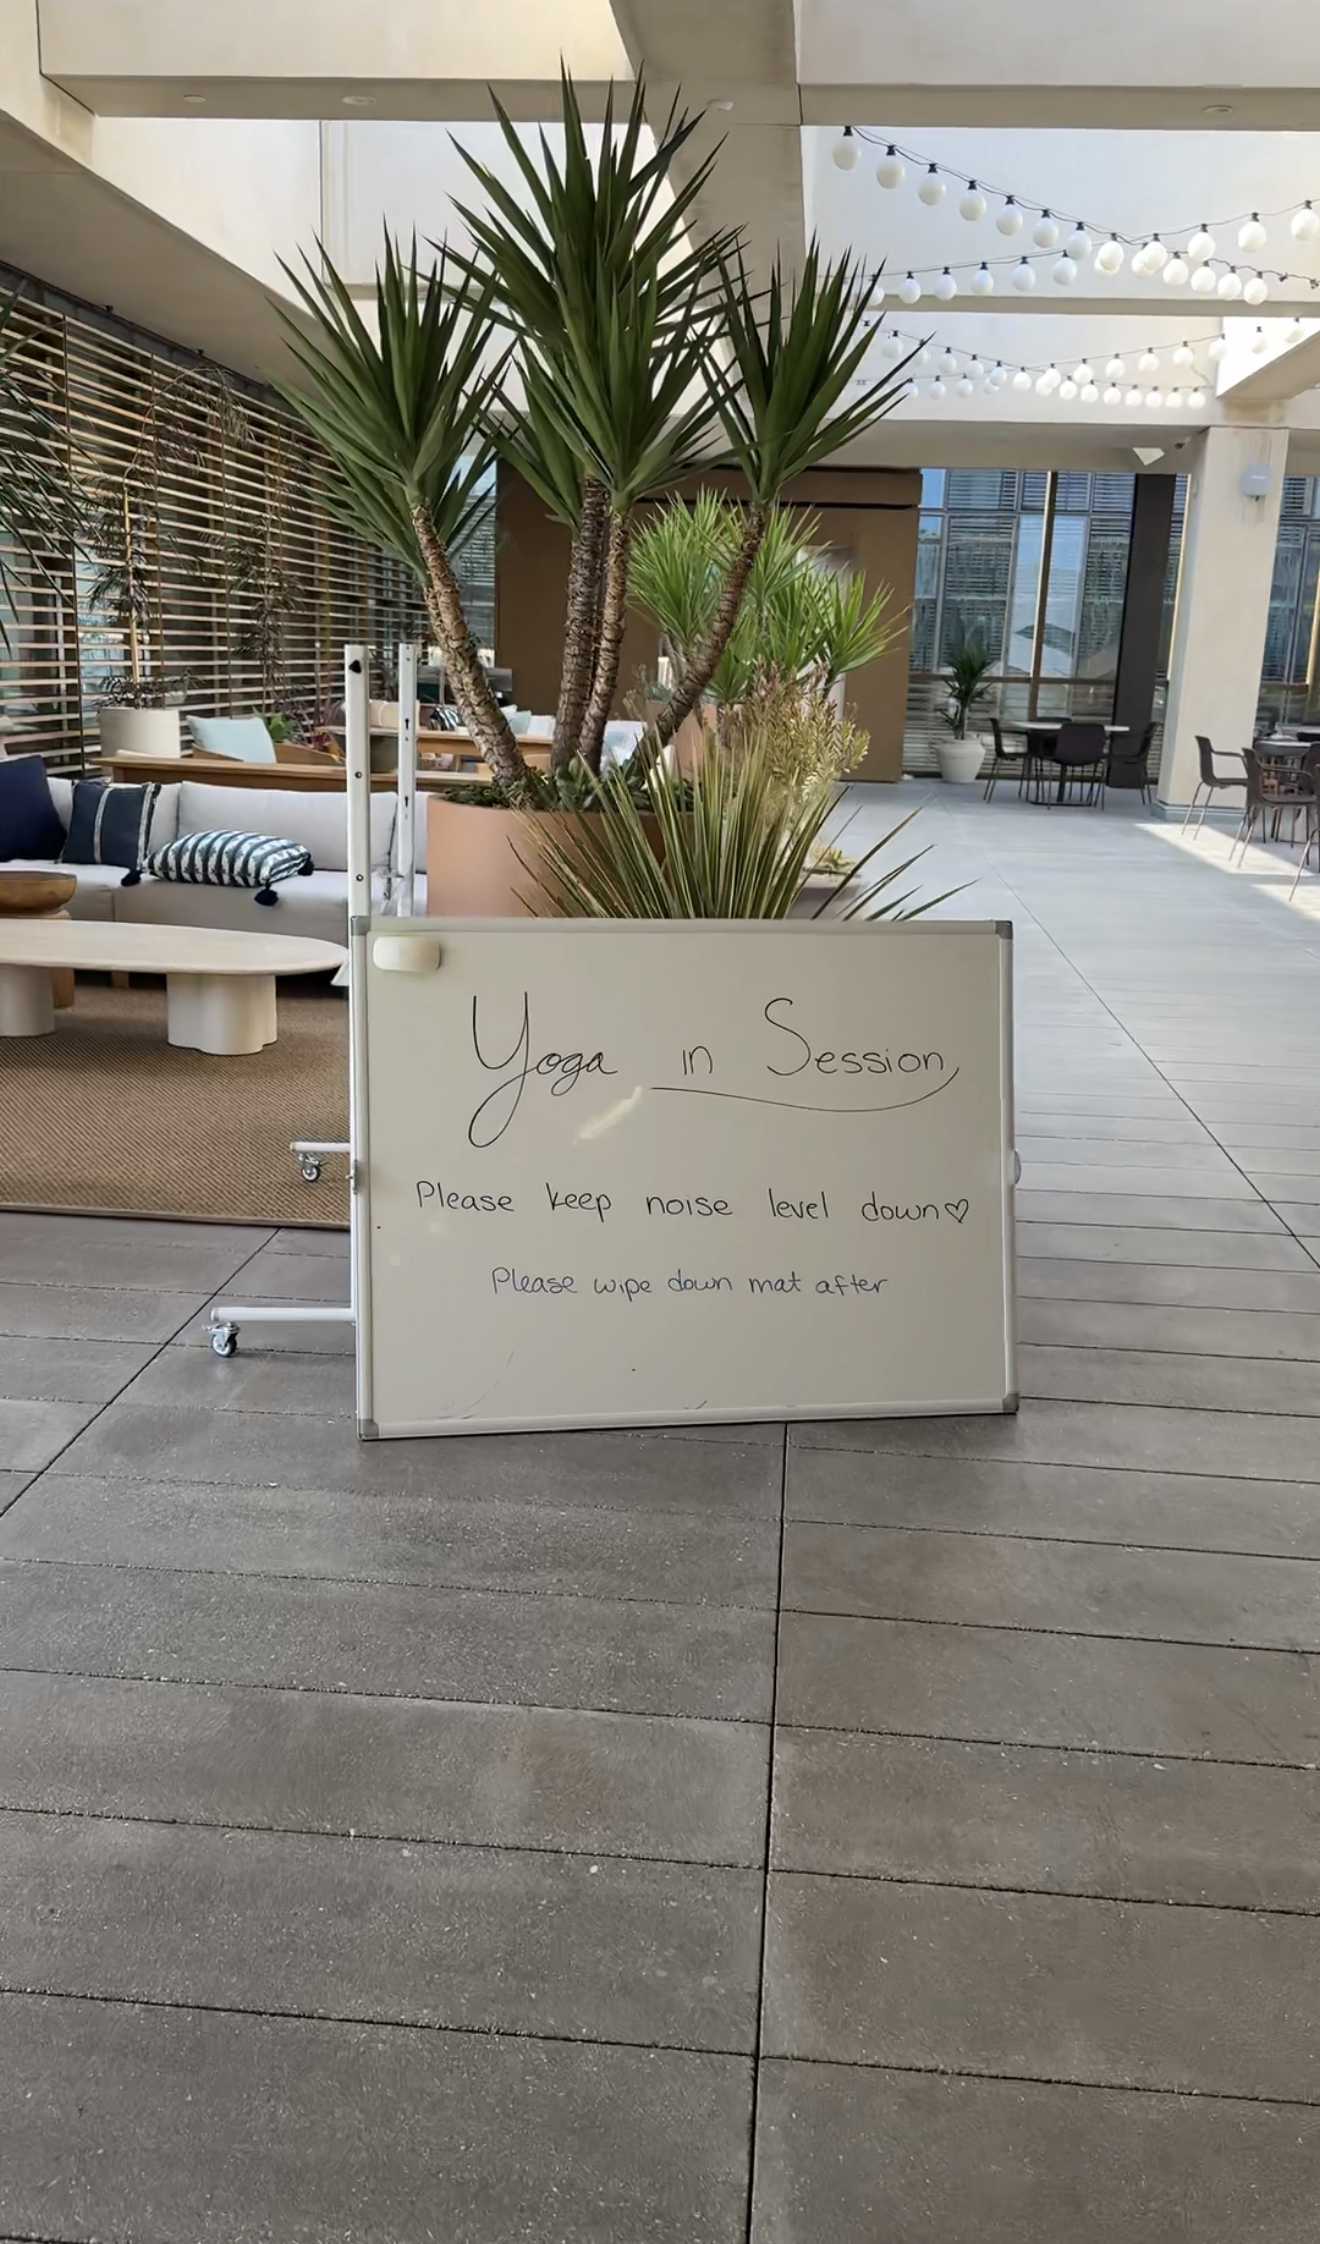 Yoga in Session
Please keep noise level down♡
Please wipe down mat after